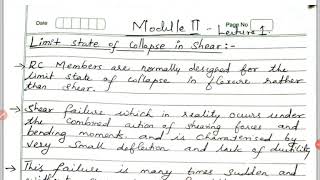 Date
Module II - Lecture 1.
Page No
Limit state of collapse in Shear:-
→ RC Members are normally designed for the
limit state of collapse in flexure rather
than shear.
→ Shear failure which in reality occurs under
the combined action of shearing forces and
bending moments and is characterised by
very small deflection and lack of ductility
→ This failure is many times sudden and